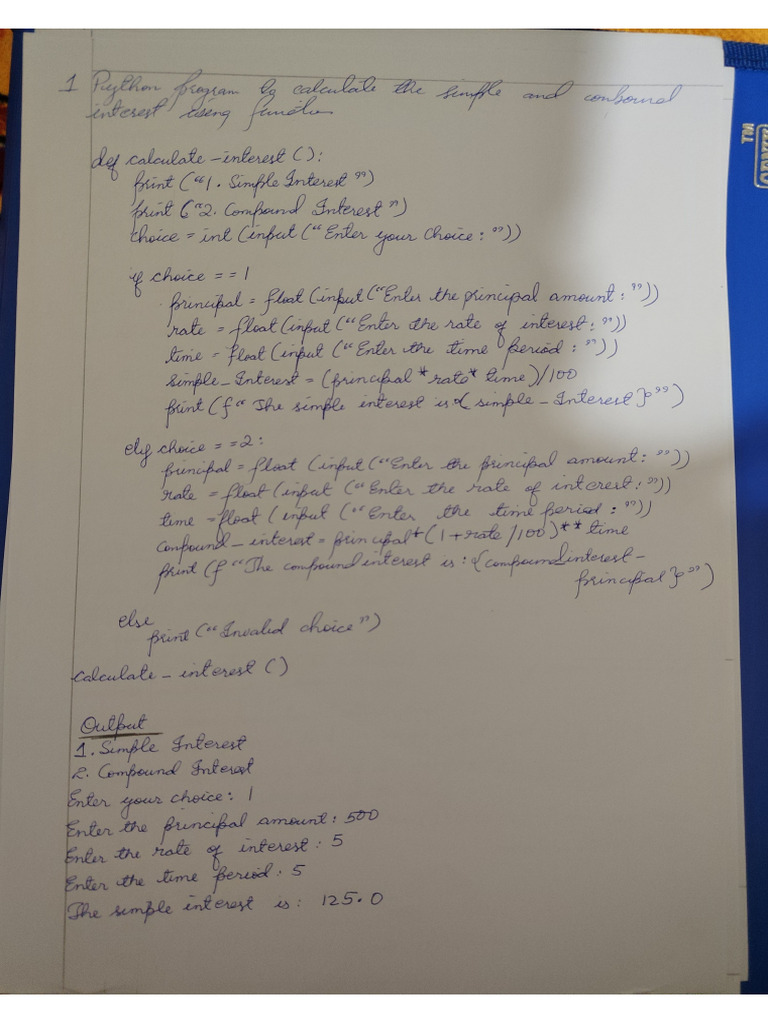 1 Python program to calculate the simple and combound
interest using function
def calculate-interest ():
print (“1. Simple Interest”)
print (“2. Compound Interest”)
choice = int (input (“Enter your choice: ”))
if choice == 1
principal = float (input (“Enter the principal amount : ”))
rate = float (input (“Enter the rate of interest: ”))
time = float (input (“Enter the time period : ”))
simple_Interest = (principal * rate * time)/100
print (f“ The simple interest is { simple_Interest }”)
elif choice == 2:
principal = float (input (“Enter the principal amount: ”))
rate = float (input (“Enter the rate of interest: ”))
time = float (input (“Enter the time period : ”))
compound_interest = principal * (1 + rate /100) ** time
print (f “The compound interest is : {compound interest -
principal }”)
else
print (“Invalid choice”)
calculate_interest ()
Output
1. Simple Interest
2. Compound Interest
Enter your choice: 1
Enter the principal amount : 500
Enter the rate of interest : 5
Enter the time period : 5
The simple interest is: 125.0
TM